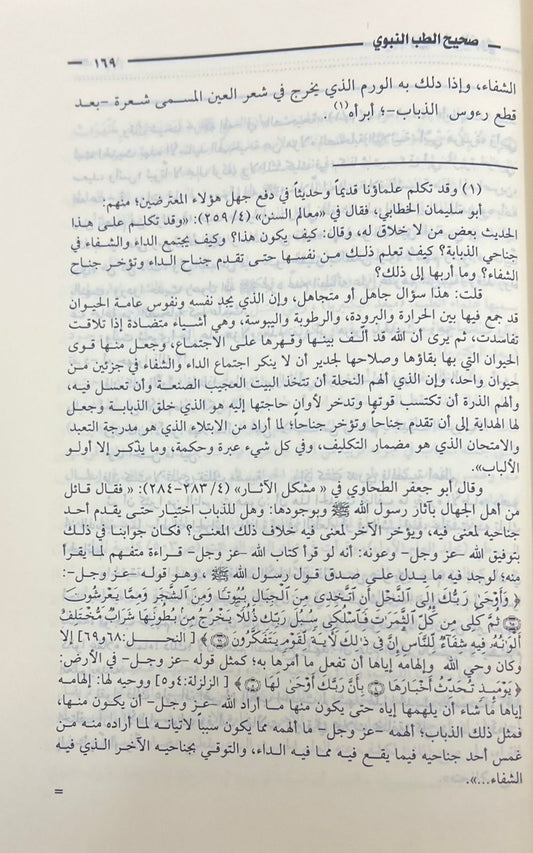 صحيح الطب النبوي
١٦٩
الشفاء، وإذا دلك به الورم الذي يخرج في شعر العين المسمى شعرة -بعد
قطع رءوس الذباب-؛ أبرأه(١).
(١) وقد تكلم علماؤنا قديماً وحديثاً في دفع جهل هؤلاء المعترضين؛ منهم:
أبو سليمان الخطابي، فقال في «معالم السنن» (٤/ ٢٥٩): «وقد تكلم على هذا
الحديث بعض من لا خلاق له، وقال: كيف يكون هذا؟ وكيف يجتمع الداء والشفاء في
جناحي الذبابة؟ كيف تعلم ذلك من نفسها حتى تقدم جناح الداء وتؤخر جناح
الشفاء؟ وما أربها إلى ذلك؟
قلت: هذا سؤال جاهل أو متجاهل، وإن الذي يجد نفسه ونفوس عامة الحيوان
قد جمع فيها بين الحرارة والبرودة، والرطوبة واليبوسة، وهي أشياء متضادة إذا تلاقت
تفاسدت، ثم يرى أن الله قد ألّف بينها وقهرها على الاجتماع، وجعل منها قوى
الحيوان التي بها بقاؤها وصلاحها لجدير أن لا ينكر اجتماع الداء والشفاء في جزئين من
حيوان واحد، وإن الذي ألهم النحلة أن تتخذ البيت العجيب الصنعة وأن تعسل فيه،
وألهم الذرة أن تكتسب قوتها وتدخر لأوان حاجتها إليه هو الذي خلق الذبابة وجعل
لها الهداية إلى أن تقدم جناحاً وتؤخر جناحاً؛ لما أراد من الابتلاء الذي هو مدرجة التعبد
والامتحان الذي هو مضمار التكليف، وفي كل شيء عبرة وحكمة، وما يذكر إلا أولو
الألباب».
وقال أبو جعفر الطحاوي في « مشكل الآثار» (٤/ ٢٨٣-٢٨٤): « فقال قائل
من أهل الجهال بآثار رسول الله ﷺ وبوجودها: وهل للذباب اختيار حتى يقدم أحد
جناحيه لمعنى فيه، ويؤخر الآخر لمعنى فيه خلاف ذلك المعنى؟ فكان جوابنا في ذلك
بتوفيق الله -عز وجل- وعونه: أنه لو قرأ كتاب الله -عز وجل- قراءة متفهم لما يقرأ
منه؛ لوجد فيه ما يدل على صدق قول رسول الله ﷺ ، وهو قوله -عز وجل-:
﴿ وَأَوْحَىٰ رَبُّكَ إِلَى ٱلنَّحْلِ أَنِ ٱتَّخِذِى مِنَ ٱلْجِبَالِ بُيُوتًا وَمِنَ ٱلشَّجَرِ وَمِمَّا يَعْرِشُونَ
۝ ثُمَّ كُلِى مِن كُلِّ ٱلثَّمَرَٰتِ فَٱسْلُكِى سُبُلَ رَبِّكِ ذُلُلًا يَخْرُجُ مِنۢ بُطُونِهَا شَرَابٌ مُّخْتَلِفٌ
أَلْوَٰنُهُۥ فِيهِ شِفَآءٌ لِّلنَّاسِ إِنَّ فِى ذَٰلِكَ لَآيَةً لِّقَوْمٍ يَتَفَكَّرُونَ ۝ ﴾ [النحل: ٦٨و٦٩] إلا
وكان وحي الله وإلهامه إياها أن تفعل ما أمرها به؛ كمثل قوله -عز وجل- في الأرض:
﴿ يَوْمَئِذٍ تُحَدِّثُ أَخْبَارَهَا ۝ بِأَنَّ رَبَّكَ أَوْحَىٰ لَهَا ۝ ﴾ [الزلزلة: ٤و٥] ووحيه لها: إلهامه
إياها ما شاء أن يلهمها إياه حتى يكون منها ما أراد الله -عز وجل- أن يكون منها،
فمثل ذلك الذباب؛ ألهمه -عز وجل- ما ألهمه مما يكون سبباً لاتيانه لما أراده منه من
غمس أحد جناحيه فيما يقع فيه مما فيه الداء، والتوقي بجناحيه الآخر الذي فيه
الشفاء...».
=